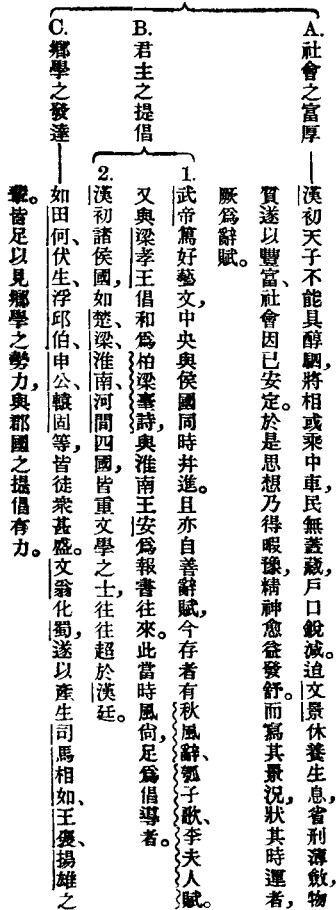 A.社會之富厚——漢初天子不能具醇駟，將相或乘牛車，民無蓋藏，戶口銳減。迨文景休養生息，省刑薄斂，物
質遂以豐富、社會因已安定。於是思想乃得暇豫，精神愈益發舒。而寫其景況，狀其時運者，
厥爲辭賦。
B.君主之提倡
1.武帝篤好藝文，中央與侯國同時幷進。且亦自善辭賦，今存者有秋風辭、瓠子歌、李夫人賦。
又與梁孝王倡和爲柏梁臺詩，與淮南王安爲報書往來。此當時風尙，足爲倡導者。
2.漢初諸侯國，如楚、梁、淮南、河間四國，皆重文學之士，往往超於漢廷。
C.鄉學之發達——如田何、伏生、浮邱伯、申公、轅固等，皆徒衆甚盛。文翁化蜀，遂以產生司馬相如、王褒、揚雄之
輩。皆足以見鄉學之勢力，與郡國之提倡有力。